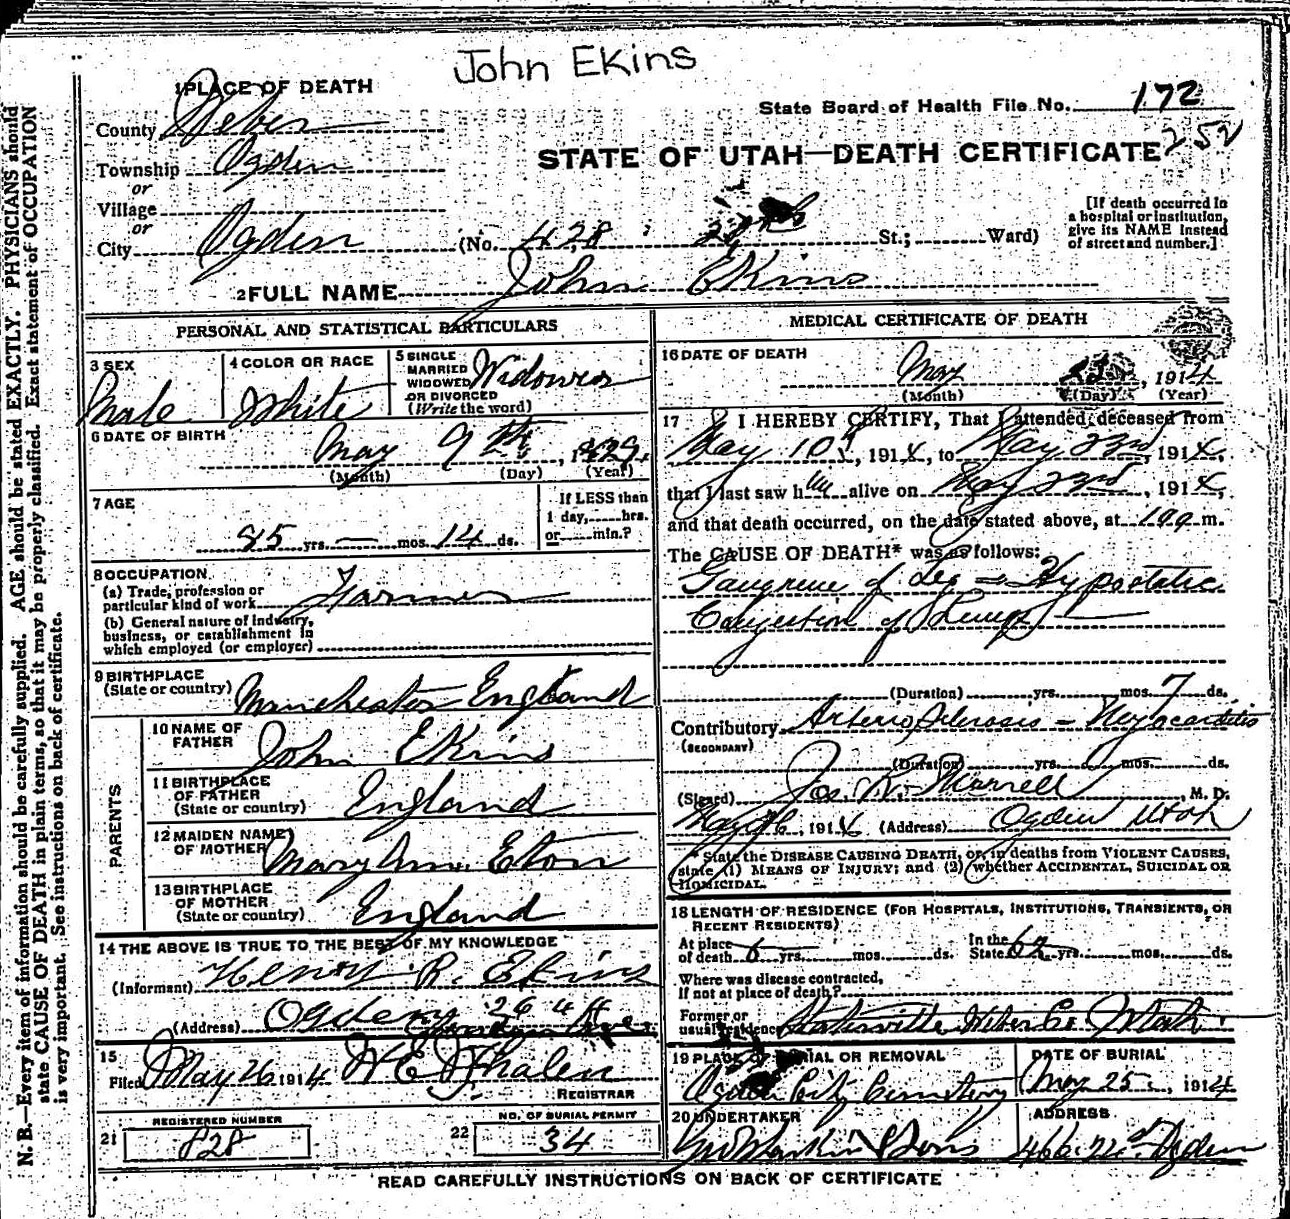 John Ekins
1 PLACE OF DEATH
State Board of Health File No. 172
County Weber
252
STATE OF UTAH—DEATH CERTIFICATE
Township Ogden
or
Village
or
City Ogden (No. 428 St.; Ward)
[If death occurred in
a hospital or institution,
give its NAME instead
of street and number.]
2 FULL NAME John Ekins
PERSONAL AND STATISTICAL PARTICULARS
3 SEX
Male
4 COLOR OR RACE
White
5 SINGLE
MARRIED
WIDOWED
OR DIVORCED
(Write the word)
Widower
6 DATE OF BIRTH
May 9th, 1829
(Month) (Day) (Year)
7 AGE
85 yrs. — mos. 14 ds.
If LESS than
1 day, hrs.
or min.?
8 OCCUPATION
(a) Trade, profession or
particular kind of work Farmer
(b) General nature of Industry,
business, or establishment in
which employed (or employer)
9 BIRTHPLACE
(State or country) Manchester England
PARENTS
10 NAME OF
FATHER John Ekins
11 BIRTHPLACE
OF FATHER
(State or country) England
12 MAIDEN NAME
OF MOTHER Mary Ann Eton
13 BIRTHPLACE
OF MOTHER
(State or country) England
14 THE ABOVE IS TRUE TO THE BEST OF MY KNOWLEDGE
(Informant) Henry R. Ekins
(Address) Ogden
15
Filed May 26 1914 W E Whalen
REGISTRAR
21 REGISTERED NUMBER
828
22 NO. OF BURIAL PERMIT
34
MEDICAL CERTIFICATE OF DEATH
16 DATE OF DEATH
May , 1914
(Month) (Day) (Year)
17 I HEREBY CERTIFY, That I attended deceased from
May 10th, 1914, to May 23rd, 1914,
that I last saw him alive on May 23rd, 1914,
and that death occurred, on the date stated above, at m.
The CAUSE OF DEATH* was as follows:
Gangrene of Leg - Hypostatic
Congestion of Lungs
(Duration) yrs. mos. 7 ds.
Contributory Arterio Sclerosis - Myocarditis
(SECONDARY)
(Duration) yrs. mos. ds.
(Signed) Jos. R. Morrell, M. D.
May 26, 1914 (Address) Ogden Utah
* State the DISEASE CAUSING DEATH, or, in deaths from VIOLENT CAUSES,
state (1) MEANS OF INJURY; and (2) whether ACCIDENTAL, SUICIDAL OR
HOMICIDAL.
18 LENGTH OF RESIDENCE (FOR HOSPITALS, INSTITUTIONS, TRANSIENTS, OR
RECENT RESIDENTS)
At place
of death 6 yrs. mos. ds.
In the
State yrs. mos. ds.
Where was disease contracted,
if not at place of death?
Former or
usual residence Slaterville Weber Co Utah
19 PLACE OF BURIAL OR REMOVAL
Ogden City Cemetery
DATE OF BURIAL
May 25, 1914
20 UNDERTAKER
Larkin & Sons
ADDRESS
Ogden
READ CAREFULLY INSTRUCTIONS ON BACK OF CERTIFICATE
N. B.—Every item of information should be carefully supplied. AGE should be stated EXACTLY. PHYSICIANS should
state CAUSE OF DEATH in plain terms, so that it may be properly classified. Exact statement of OCCUPATION
is very important. See instructions on back of certificate.